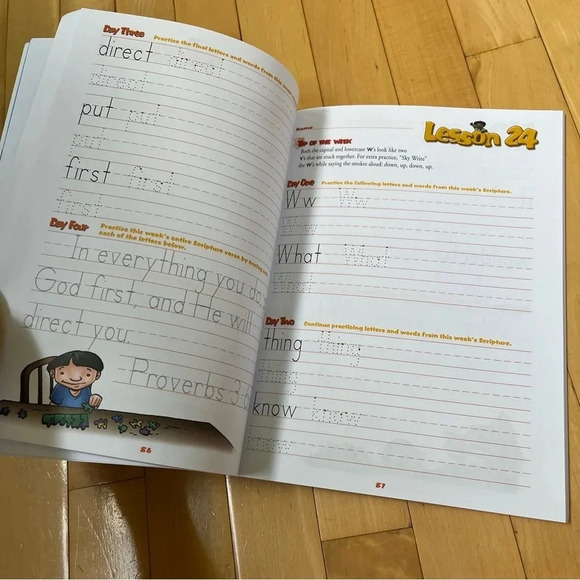 Day Three Practice the final letters and words from this week's
direct direct
direct
put put
put
first first
first
Day Four Practice this week's entire Scripture verse by tracing
each of the letters below.
In everything you do,
God first, and He will
direct you.
Proverbs 3:6
86
Name
Lesson 24
Tip of the Week
Both the capital and lowercase W's look like two
V's that are stuck together. For extra practice, "Sky Write"
the W's while saying the strokes aloud: down, up, down, up.
Day One Practice the following letters and words from this week's Scripture.
W w W w
W w
What What
What
Day Two Continue practicing letters and words from this week's Scripture.
thing thing
thing
know know
know
87